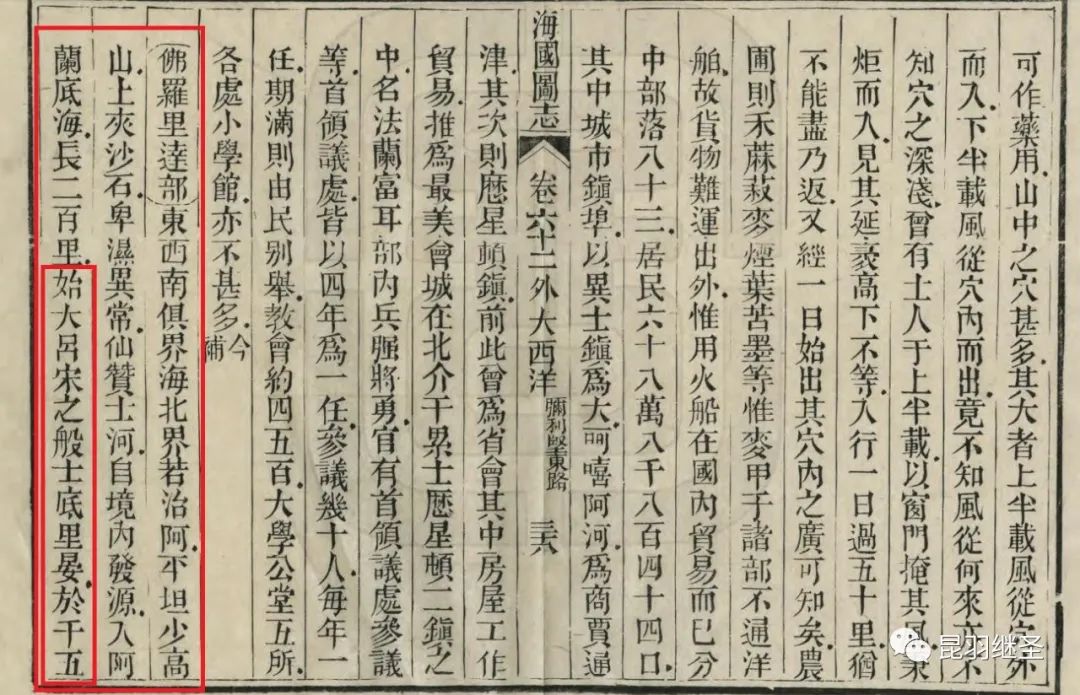 可作藥用山中之穴甚多其大者上半載風從穴外
而入下半載風從穴內而出竟不知風從何來亦不
知穴之深淺曾有土人于上半載以窗門掩其風秉
炬而入見其延袤高下不等入行一日過五十里猶
不能盡乃返又經一日始出其穴內之廣可知矣農
圃則禾蔴菽麥煙葉苦墨等惟麥甲子諸部不通洋
舶故貨物難運出外惟用火船在國內貿易而已分
中部落八十三居民六十八萬八千八百四十四口
其中城市鎮埠以異士鎮爲大呵嘻阿河爲商賈通
海國圖志
卷六十二外大西洋
彌利堅東路
三六
津其次則歷星頓鎮前此曾爲省會其中房屋工作
貿易推爲最美會城在北介干累士歷星頓二鎮之
中名法蘭富耳部內兵强將勇官有首領議處參議
等首領議處皆以四年爲一任參議幾十人每年一
任期滿則由民別舉教會約四五百大學公堂五所
各處小學館亦不甚多今
補
佛羅里達部東西南俱界海北界若治阿平坦少高
山上夾沙石卑濕異常仙贊士河自境內發源入阿
蘭底海長二百里始大呂宋之般士底里晏於千五
昆羽继圣